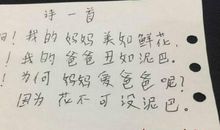 诗一首
啊！我的妈妈美如鲜花，
！我的爸爸丑如泥巴。
！为何妈妈爱爸爸呢？
因为花不可没泥巴。